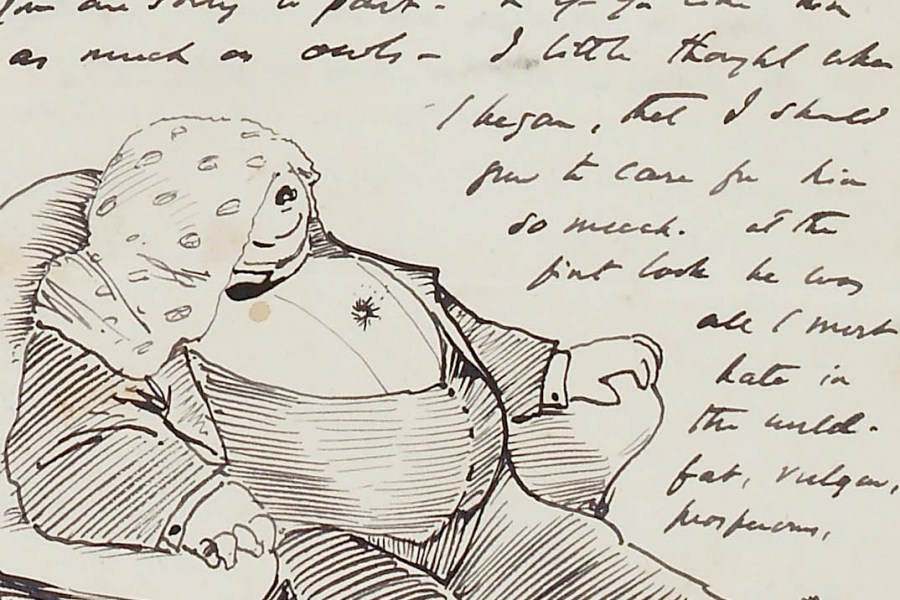 you are sorry to part - &
as much as owls - I little thought when
I began, that I should
grow to care for him
so much. at the
first look he was
all I most
hate in
the world.
fat, vulgar,
prosperous,